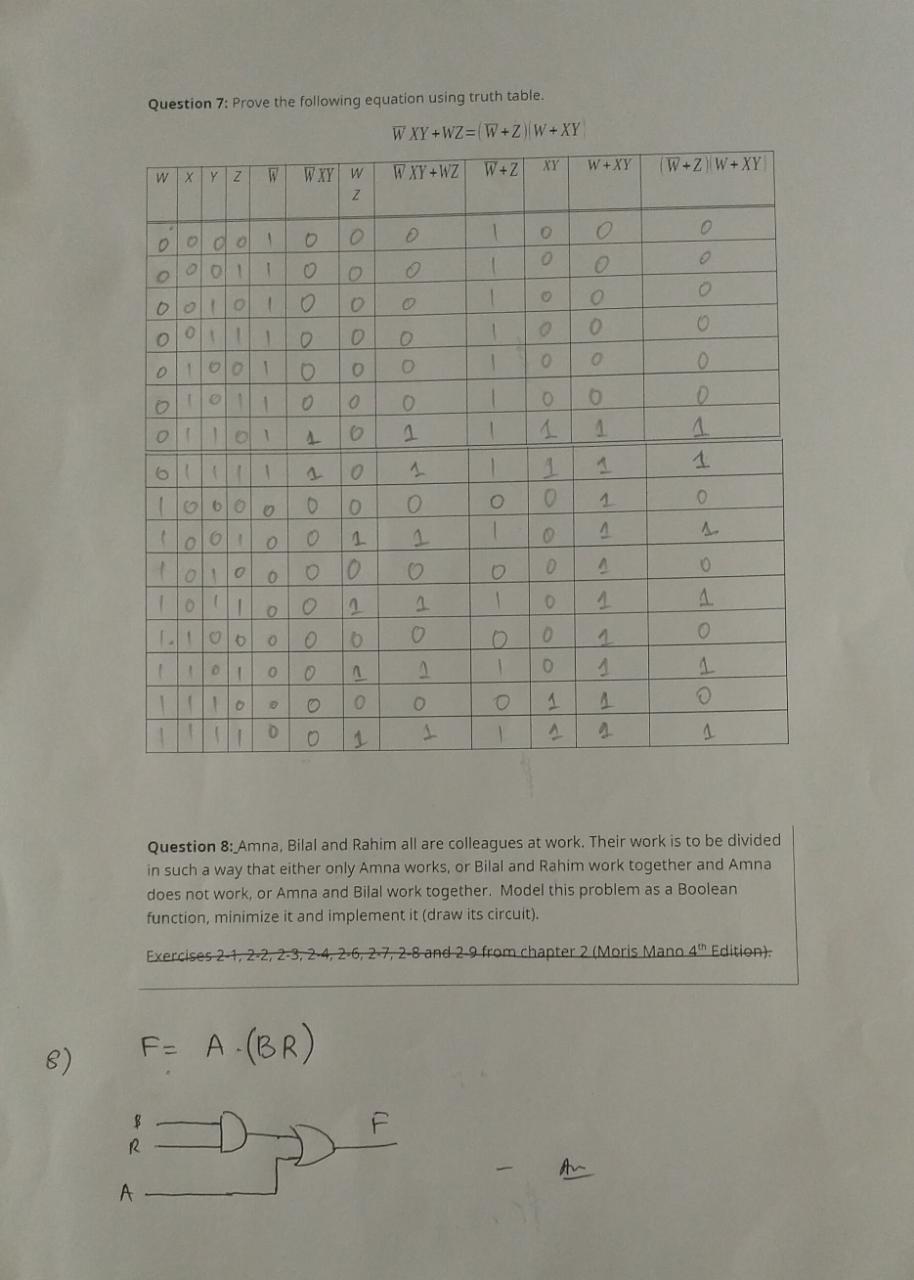 Question 7: Prove the following equation using truth table.
W̅ XY+WZ=(W̅+Z)(W+XY)
W X Y Z W̅ W̅ XY W Z W̅ XY+WZ W̅+Z XY W+XY (W̅+Z)(W+XY)
0 0 0 0 1 0 0 0 1 0 0 0
0 0 0 1 1 0 0 0 1 0 0 0
0 0 1 0 1 0 0 0 1 0 0 0
0 0 1 1 1 0 0 0 1 0 0 0
0 1 0 0 1 0 0 0 1 0 0 0
0 1 0 1 1 0 0 0 1 0 0 0
0 1 1 0 1 1 0 1 1 1 1 1
0 1 1 1 1 1 0 1 1 1 1 1
1 0 0 0 0 0 0 0 0 0 1 0
1 0 0 1 0 0 1 1 1 0 1 1
1 0 1 0 0 0 0 0 0 0 1 0
1 0 1 1 0 0 1 1 1 0 1 1
1 1 0 0 0 0 0 0 0 0 1 0
1 1 0 1 0 0 1 1 1 0 1 1
1 1 1 0 0 0 0 0 0 1 1 0
1 1 1 1 0 0 1 1 1 1 1 1
Question 8: Amna, Bilal and Rahim all are colleagues at work. Their work is to be divided
in such a way that either only Amna works, or Bilal and Rahim work together and Amna
does not work, or Amna and Bilal work together. Model this problem as a Boolean
function, minimize it and implement it (draw its circuit).
Exercises 2-1, 2-2, 2-3, 2-4, 2-6, 2-7, 2-8 and 2-9 from chapter 2 (Moris Mano 4th Edition).
8) F= A.(BR)
B
R
F
A